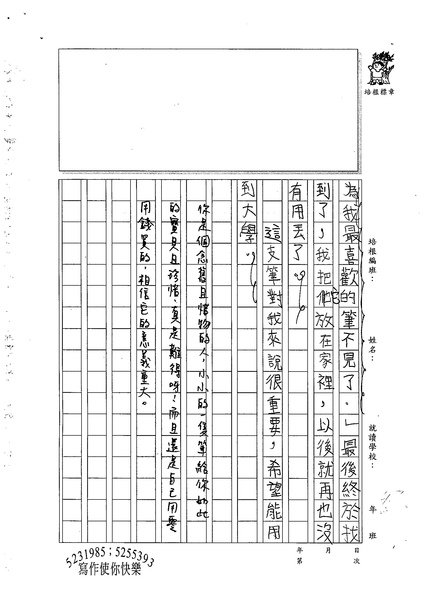 培根標章
培根編班：
姓名：
就讀學校：
年 班
為我最喜歡的筆不見了。」最後終於找
到了，我把他它放在家裡，以後就再也沒
有用丟了。
這支筆對我來說很重要，希望能用
到大學。
你是個念舊且惜物的人，小小的一隻筆給你如此
的寶貝且珍惜，真是難得呀！而且還是自己用零
用錢買的，相信它的意義重大。
年 月 日
第 次
5231985；5255393
寫作使你快樂